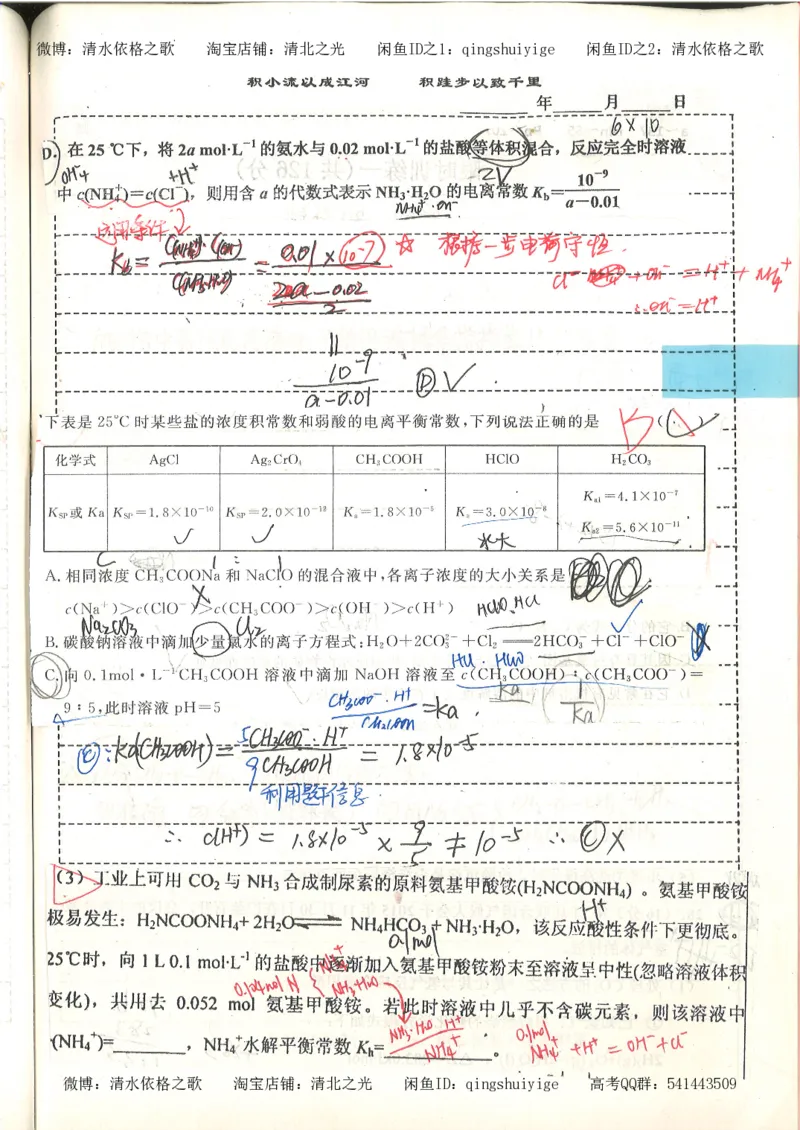 微博：清水依格之歌 淘宝店铺：清北之光 闲鱼ID之1：qingshuiyige 闲鱼ID之2：清水依格之歌
积小流以成江河 积跬步以致千里
年 月 日
6×10
D. 在 25 ℃下，将 2a mol·L⁻¹的氨水与 0.02 mol·L⁻¹的盐酸等体积混合，反应完全时溶液
2V
中 c(NH₄⁺)=c(Cl⁻)，则用含 a 的代数式表示 NH₃·H₂O 的电离常数 Kb=10⁻⁹/(a−0.01)
NH₄⁺·OH⁻
Kb = c(NH₄⁺)·c(OH⁻)/c(NH₃·H₂O) = 0.01×10⁻⁷/((2a−0.02)/2) ☆ 根据一步电荷守恒.
Cl⁻ + OH⁻ = H⁺ + NH₄⁺
∴ OH⁻ = H⁺
10⁻⁹/(a−0.01) Ⓓ✓
下表是 25℃ 时某些盐的浓度积常数和弱酸的电离平衡常数，下列说法正确的是 ( )
化学式 AgCl Ag₂CrO₄ CH₃COOH HClO H₂CO₃
KSP或 Ka KSP=1.8×10⁻¹⁰ KSP=2.0×10⁻¹² Ka=1.8×10⁻⁵ Ka=3.0×10⁻⁸ Ka1=4.1×10⁻⁷
Ka2=5.6×10⁻¹¹
水大
A. 相同浓度 CH₃COONa 和 NaClO 的混合液中，各离子浓度的大小关系是
c(Na⁺)>c(ClO⁻)>c(CH₃COO⁻)>c(OH⁻)>c(H⁺)
HClO、HCl
Na₂CO₃ Cl₂
B. 碳酸钠溶液中滴加少量氯水的离子方程式：H₂O+2CO₃²⁻+Cl₂══2HCO₃⁻+Cl⁻+ClO⁻
HCl · HClO
C. 向 0.1mol·L⁻¹CH₃COOH 溶液中滴加 NaOH 溶液至 c(CH₃COOH)∶c(CH₃COO⁻)=
9∶5，此时溶液 pH=5
CH₃COO⁻·H⁺/CH₃COOH = Ka
1/Ka
Ⓒ: Ka(CH₃COOH) = 5CH₃COO⁻·H⁺/9CH₃COOH = 1.8×10⁻⁵
利用题干信息
∴ c(H⁺) = 1.8×10⁻⁵ × 9/5 ≠ 10⁻⁵ ∴ Ⓒ×
（3）工业上可用 CO₂ 与 NH₃ 合成制尿素的原料氨基甲酸铵(H₂NCOONH₄) 。氨基甲酸铵
H⁺
极易发生：H₂NCOONH₄+ 2H₂O⇌NH₄HCO₃+ NH₃·H₂O，该反应酸性条件下更彻底。
0.1mol
25℃时，向 1 L 0.1 mol·L⁻¹的盐酸中逐渐加入氨基甲酸铵粉末至溶液呈中性(忽略溶液体积
0.104mol N NH₄⁺ NH₃·H₂O
变化)，共用去 0.052 mol 氨基甲酸铵。若此时溶液中几乎不含碳元素，则该溶液中
NH₃·H₂O H⁺/NH₄⁺
0.1mol NH₄⁺ + H⁺ = OH⁻ + Cl⁻
c(NH₄⁺)= ，NH₄⁺水解平衡常数 Kh= 。
微博：清水依格之歌 淘宝店铺：清北之光 闲鱼ID：qingshuiyige 高考QQ群：541443509